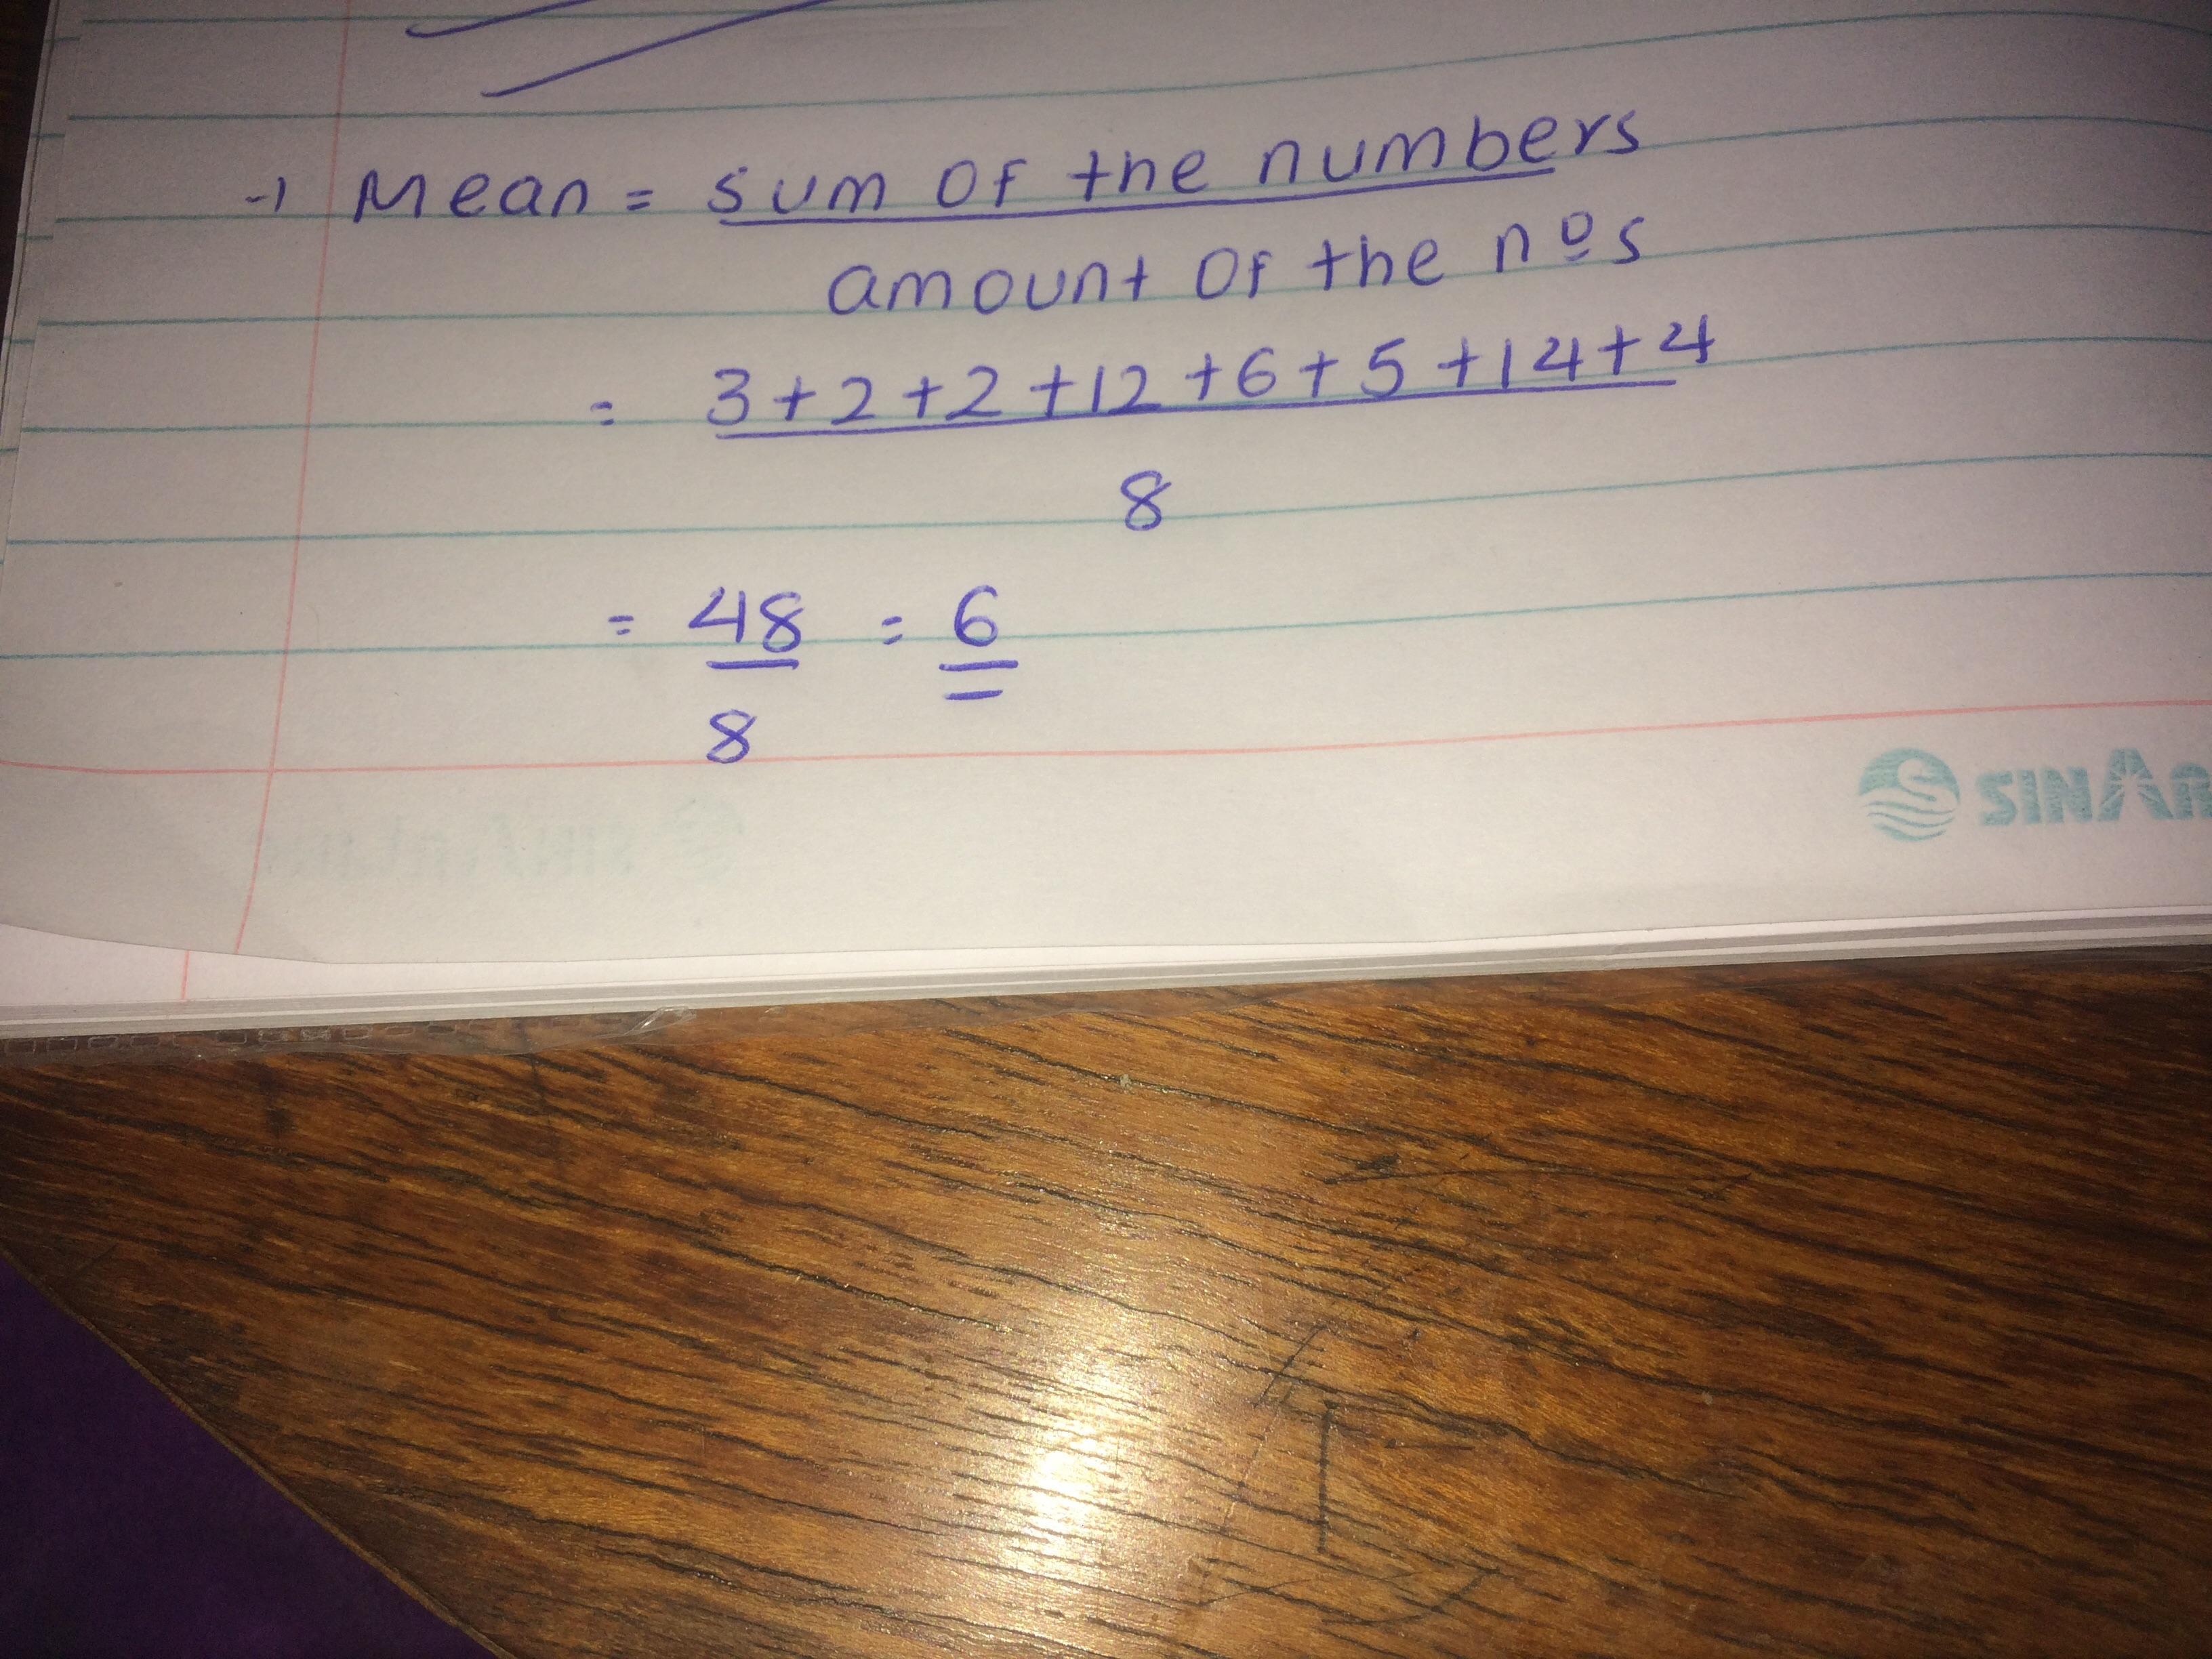 → Mean = sum of the numbers
amount of the nºs
= 3+2+2+12+6+5+14+4
8
= 48 = 6
8
SINAR